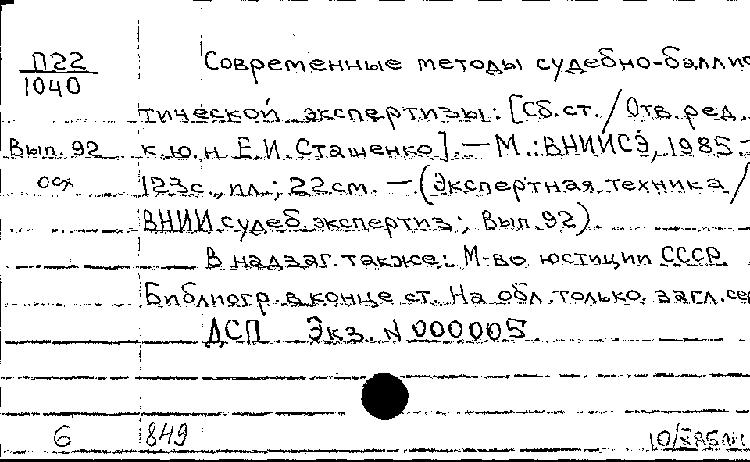 П22
1040
Современные методы судебно-баллис
тической экспертизы: [Сб. ст. / Отв. ред.
Вып. 92
к.ю.н Е.И. Сташенко]. — М.: ВНИИСЭ, 1985 -
осх
123с., ил.; 22см. — (Экспертная техника /
ВНИИ судеб. экспертиз; Вып. 92)
В надзаг. также: М-во юстиции СССР.
Библиогр. в конце ст. На обл. только загл. сер
ДСП Экз. N 000005
6
849